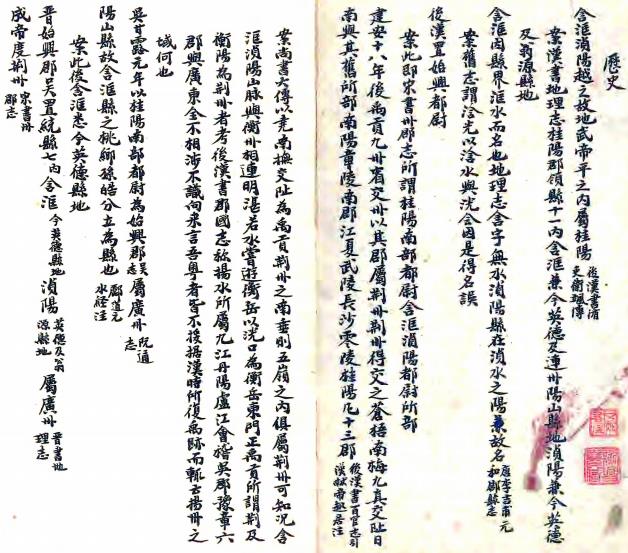 歷史
含洭湞陽越之故地武帝平之內屬桂陽 後漢書循吏衛颯傳
案漢書地理志桂陽郡領縣十一內含洭兼今英德及連州陽山縣地湞陽兼今英德
及翁源縣地
含洭因縣界洭水而名也地理志含字無水湞陽縣在湞水之陽兼故名 唐李吉甫元和郡縣志
案舊志謂浛光以浛水與洸合因是得名誤
後漢置始興都尉
案此即宋書州郡志所謂桂陽南部都尉含洭湞陽都尉所部
建安十八年復禹貢九州省交州以其郡屬荊州荊州得交之蒼梧南海九真交趾日
南與其舊所部南陽章陵南郡江夏武陵長沙零陵桂陽凡十三郡 後漢書百官志引漢獻帝起居注
案尚書大傳以堯南撫交阯為禹貢荊州之南垂則五嶺之內俱屬荊州可知況含
洭湞陽山脈與衡州相連明湛若水嘗遊衡岳以洸口為衡岳東門正禹貢所謂荊及
衡陽為荊州者考後漢書郡國志枚揚水所屬九江丹陽盧江會稽吳郡豫章六
郡與廣東全不相涉不識向來言吾粵者皆不援據漢時所復禹跡而輒云揚州之
域何也
吳甘露元年以桂陽南部都尉為始興郡 吳志 屬廣州 阮通志
陽山縣故含洭縣之桃鄉孫皓分立為縣也 酈道元水經注
案此後含洭悉今英德縣地
晉始興郡吳置統縣七內含洭 今英德縣地 湞陽 英德及翁源縣地 屬廣州 晉書地理志
成帝度荊州 宋書州郡志